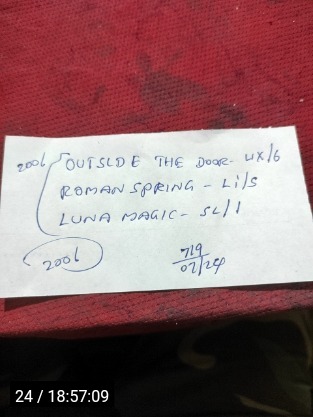 200/ OUTSIDE THE DOOR - UX/6
ROMAN SPRING - Li/S
LUNA MAGIC - SL/1
200/
719
02/24
24 / 18:57:09